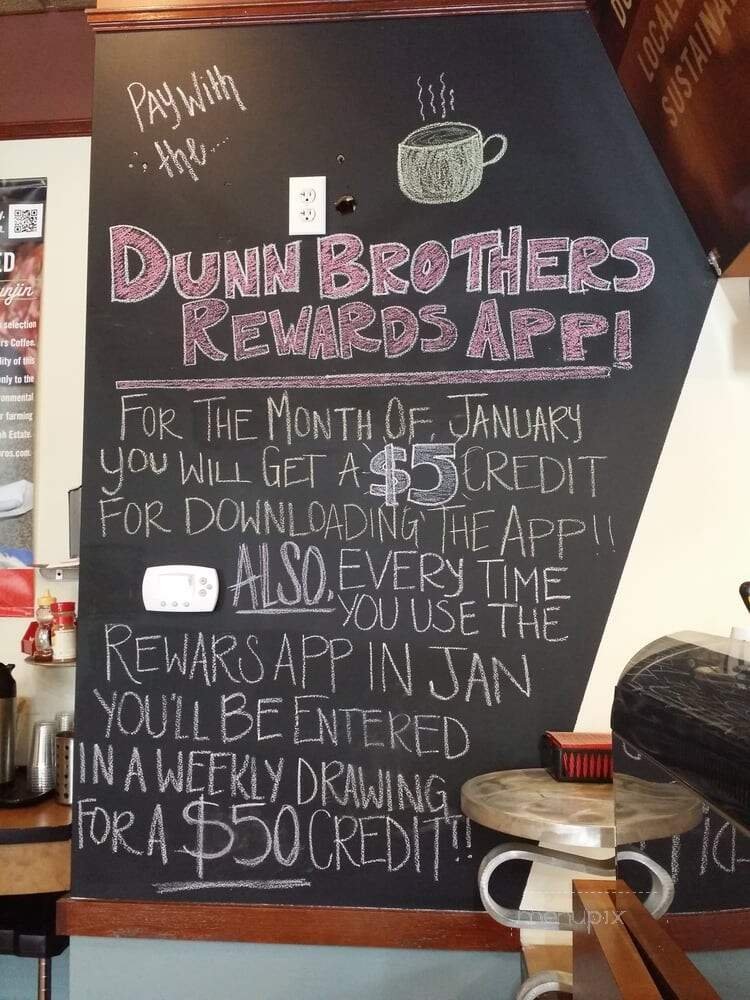 PAY WITH
the....
DUNN BROTHERS
REWARDS APP!
FOR THE MONTH OF JANUARY
YOU WILL GET A $5 CREDIT
FOR DOWNLOADING THE APP!!
ALSO, EVERY TIME
YOU USE THE
REWARS APP IN JAN
YOU'LL BE ENTERED
IN A WEEKLY DRAWING
FOR A $50 CREDIT!!
LOCAL
SUSTAINA
ED
unjin
selection
rs Coffee.
lity of this
only to the
ronmental
r farming
h Estate.
ros.com.
menupix